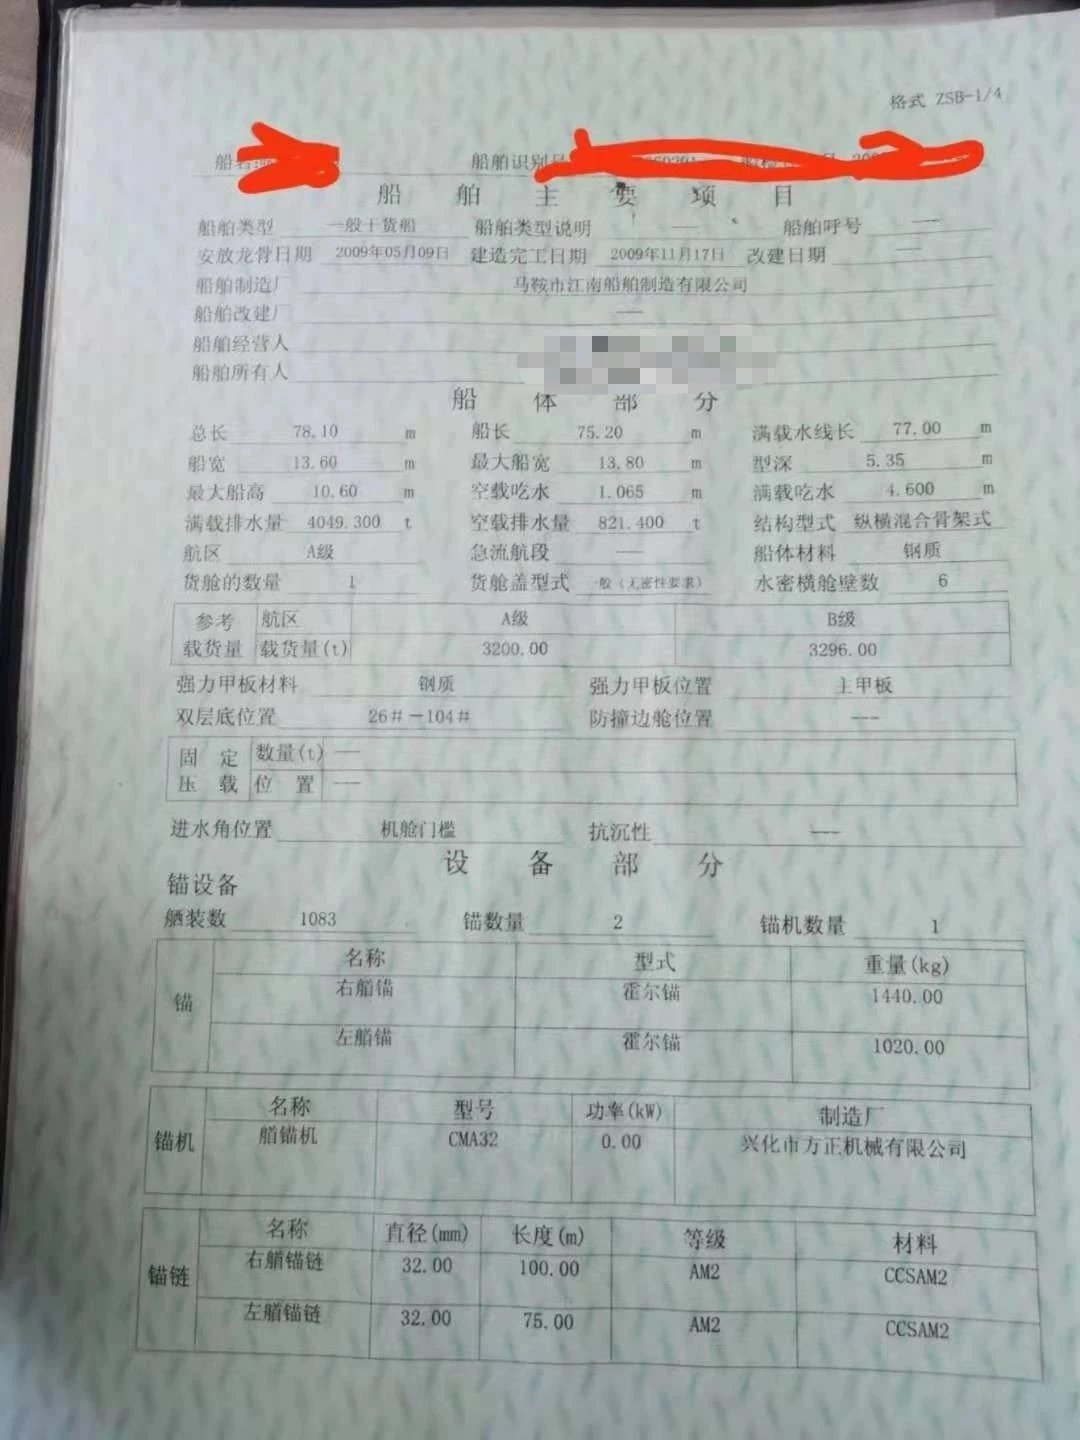 格式 ZSB-1/4
船舶识别号
船舶主要项目
船舶类型 一般干货船 船舶类型说明 —— 船舶呼号 ——
安放龙骨日期 2009年05月09日 建造完工日期 2009年11月17日 改建日期 ——
船舶制造厂 马鞍市江南船舶制造有限公司
船舶改建厂 ——
船舶经营人
船舶所有人
船体部分
总长 78.10 m 船长 75.20 m 满载水线长 77.00 m
船宽 13.60 m 最大船宽 13.80 m 型深 5.35 m
最大船高 10.60 m 空载吃水 1.065 m 满载吃水 4.600 m
满载排水量 4049.300 t 空载排水量 821.400 t 结构型式 纵横混合骨架式
航区 A级 急流航段 —— 船体材料 钢质
货舱的数量 1 货舱盖型式 一般(无密性要求) 水密横舱壁数 6
参考 航区 A级 B级
载货量 载货量(t) 3200.00 3296.00
强力甲板材料 钢质 强力甲板位置 主甲板
双层底位置 26#－104# 防撞边舱位置 ---
固定 数量(t) ---
压载 位置 ---
进水角位置 机舱门槛 抗沉性 ---
设备部分
锚设备
舾装数 1083 锚数量 2 锚机数量 1
名称 型式 重量(kg)
锚 右艏锚 霍尔锚 1440.00
左艏锚 霍尔锚 1020.00
名称 型号 功率(kW) 制造厂
锚机 艏锚机 CMA32 0.00 兴化市方正机械有限公司
名称 直径(mm) 长度(m) 等级 材料
锚链 右艏锚链 32.00 100.00 AM2 CCSAM2
左艏锚链 32.00 75.00 AM2 CCSAM2